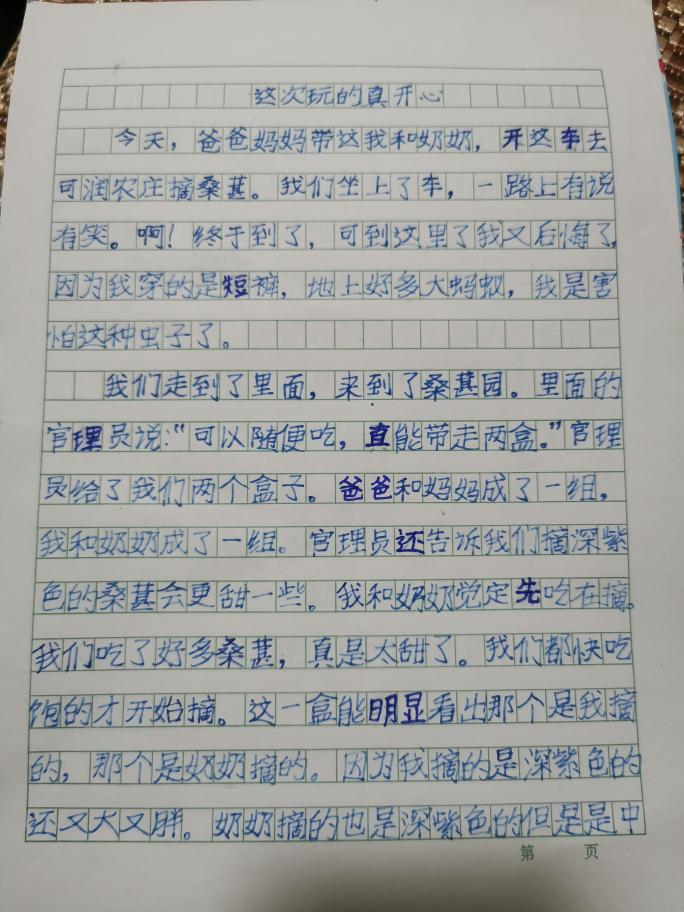 这次玩的真开心
今天，爸爸妈妈带这我和奶奶，开这车去
可润农庄摘桑葚。我们坐上了车，一路上有说
有笑。啊！终于到了，可到这里了我又后悔了，
因为我穿的是短裤，地上好多大蚂蚁，我是害
怕这种虫子了。
我们走到了里面，来到了桑葚园。里面的
官理员说：“可以随便吃，直能带走两盒。”官理
员给了我们两个盒子。爸爸和妈妈成了一组，
我和奶奶成了一组。官理员还告诉我们摘深紫
色的桑葚会更甜一些。我和奶奶觉定先吃在摘。
我们吃了好多桑葚，真是太甜了。我们都快吃
饱的才开始摘。这一盒能明显看出那个是我摘
的，那个是奶奶摘的。因为我摘的是深紫色的
还又大又胖。奶奶摘的也是深紫色的但是是中
第 页